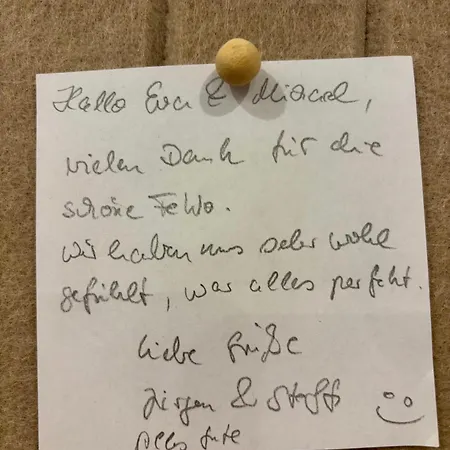 Hallo Eva & Michael,
vielen Dank für die
schöne FeWo.
Wir haben uns sehr wohl
gefühlt, war alles perfekt.
liebe Grüße
Jürgen & Steffi
Alles Gute